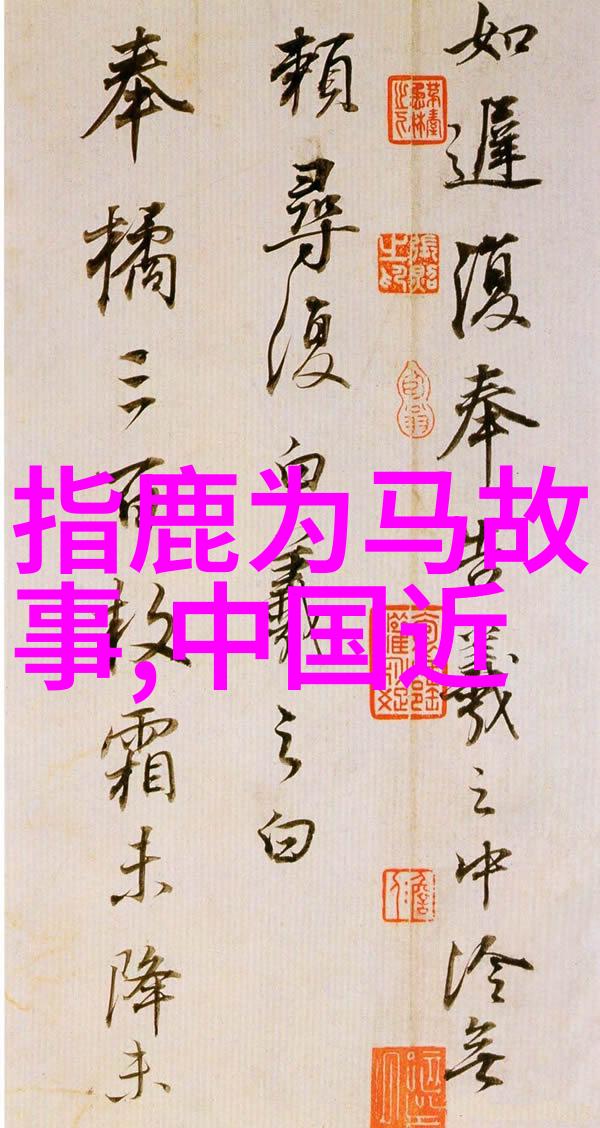 如遲復奉告羲之中冷無
賴尋復白羲之白
奉橘三百枚霜未降未
指鹿为马故
事,中国近